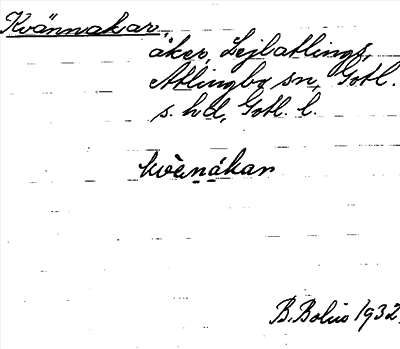 Kvännakar,
åker, Lejlatlings,
Atlingbo sn, Gotl.
s. hd, Gotl. l.
kvènákar
B. Bolin 1932.